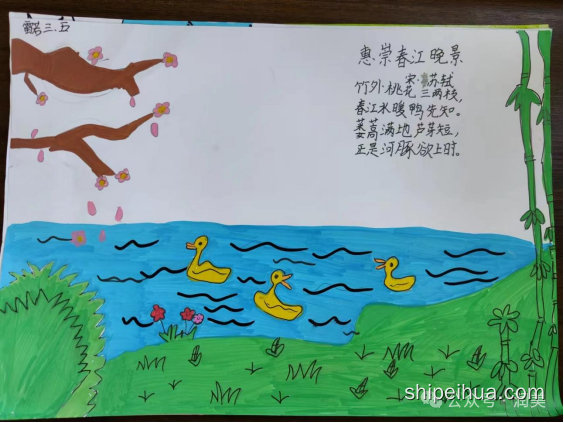 三.五
惠崇春江晚景
宋·苏轼
竹外桃花三两枝，
春江水暖鸭先知。
蒌蒿满地芦芽短，
正是河豚欲上时。
shipeihua.com
公众号·润美